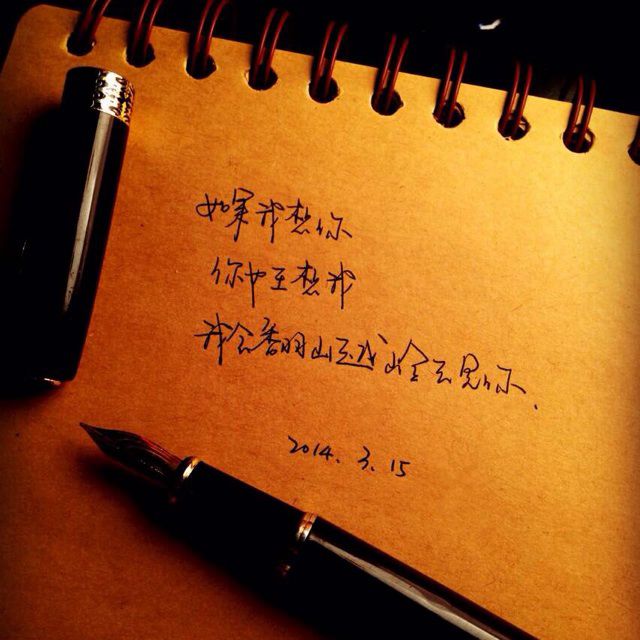 如果我想你
你也在想我
我会翻山越岭去见你.
2014.3.15